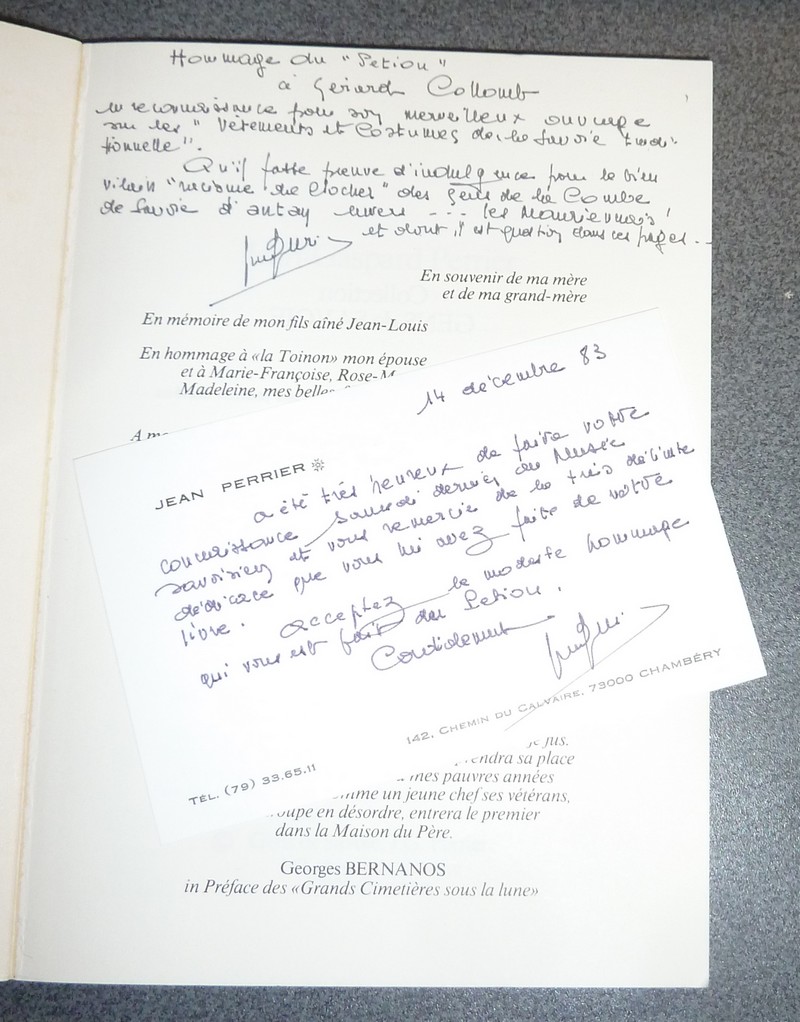 Hommage du "Petiou"
à Gérard Collomb
en reconnaissance pour son merveilleux ouvrage
sur les "Vêtements et Costumes de la Savoie tradi-
tionnelle".
Qu'il fasse preuve d'indulgence pour le bien
vilain "racisme de clocher" des gens de la Combe
de Savoie d'antan envers --- les Mauriennais!
et dont il est question dans ces pages...
En souvenir de ma mère
et de ma grand-mère
En mémoire de mon fils aîné Jean-Louis
En hommage à «la Toinon» mon épouse
et à Marie-Françoise, Rose-M
Madeleine, mes belles
A m
14 décembre 83
JEAN PERRIER
a été très heureux de faire votre
connaissance samedi dernier au Musée
savoisien et vous remercie de la très délicate
dédicace que vous lui avez faite de votre
livre. Acceptez le modeste hommage
qui vous est fait du Petiou.
Cordialement
142, CHEMIN DU CALVAIRE, 73000 CHAMBÉRY
TÉL. (79) 33.65.11
je fus.
endra sa place
mes pauvres années
mme un jeune chef ses vétérans,
oupe en désordre, entrera le premier
dans la Maison du Père.
Georges BERNANOS
in Préface des «Grands Cimetières sous la lune»